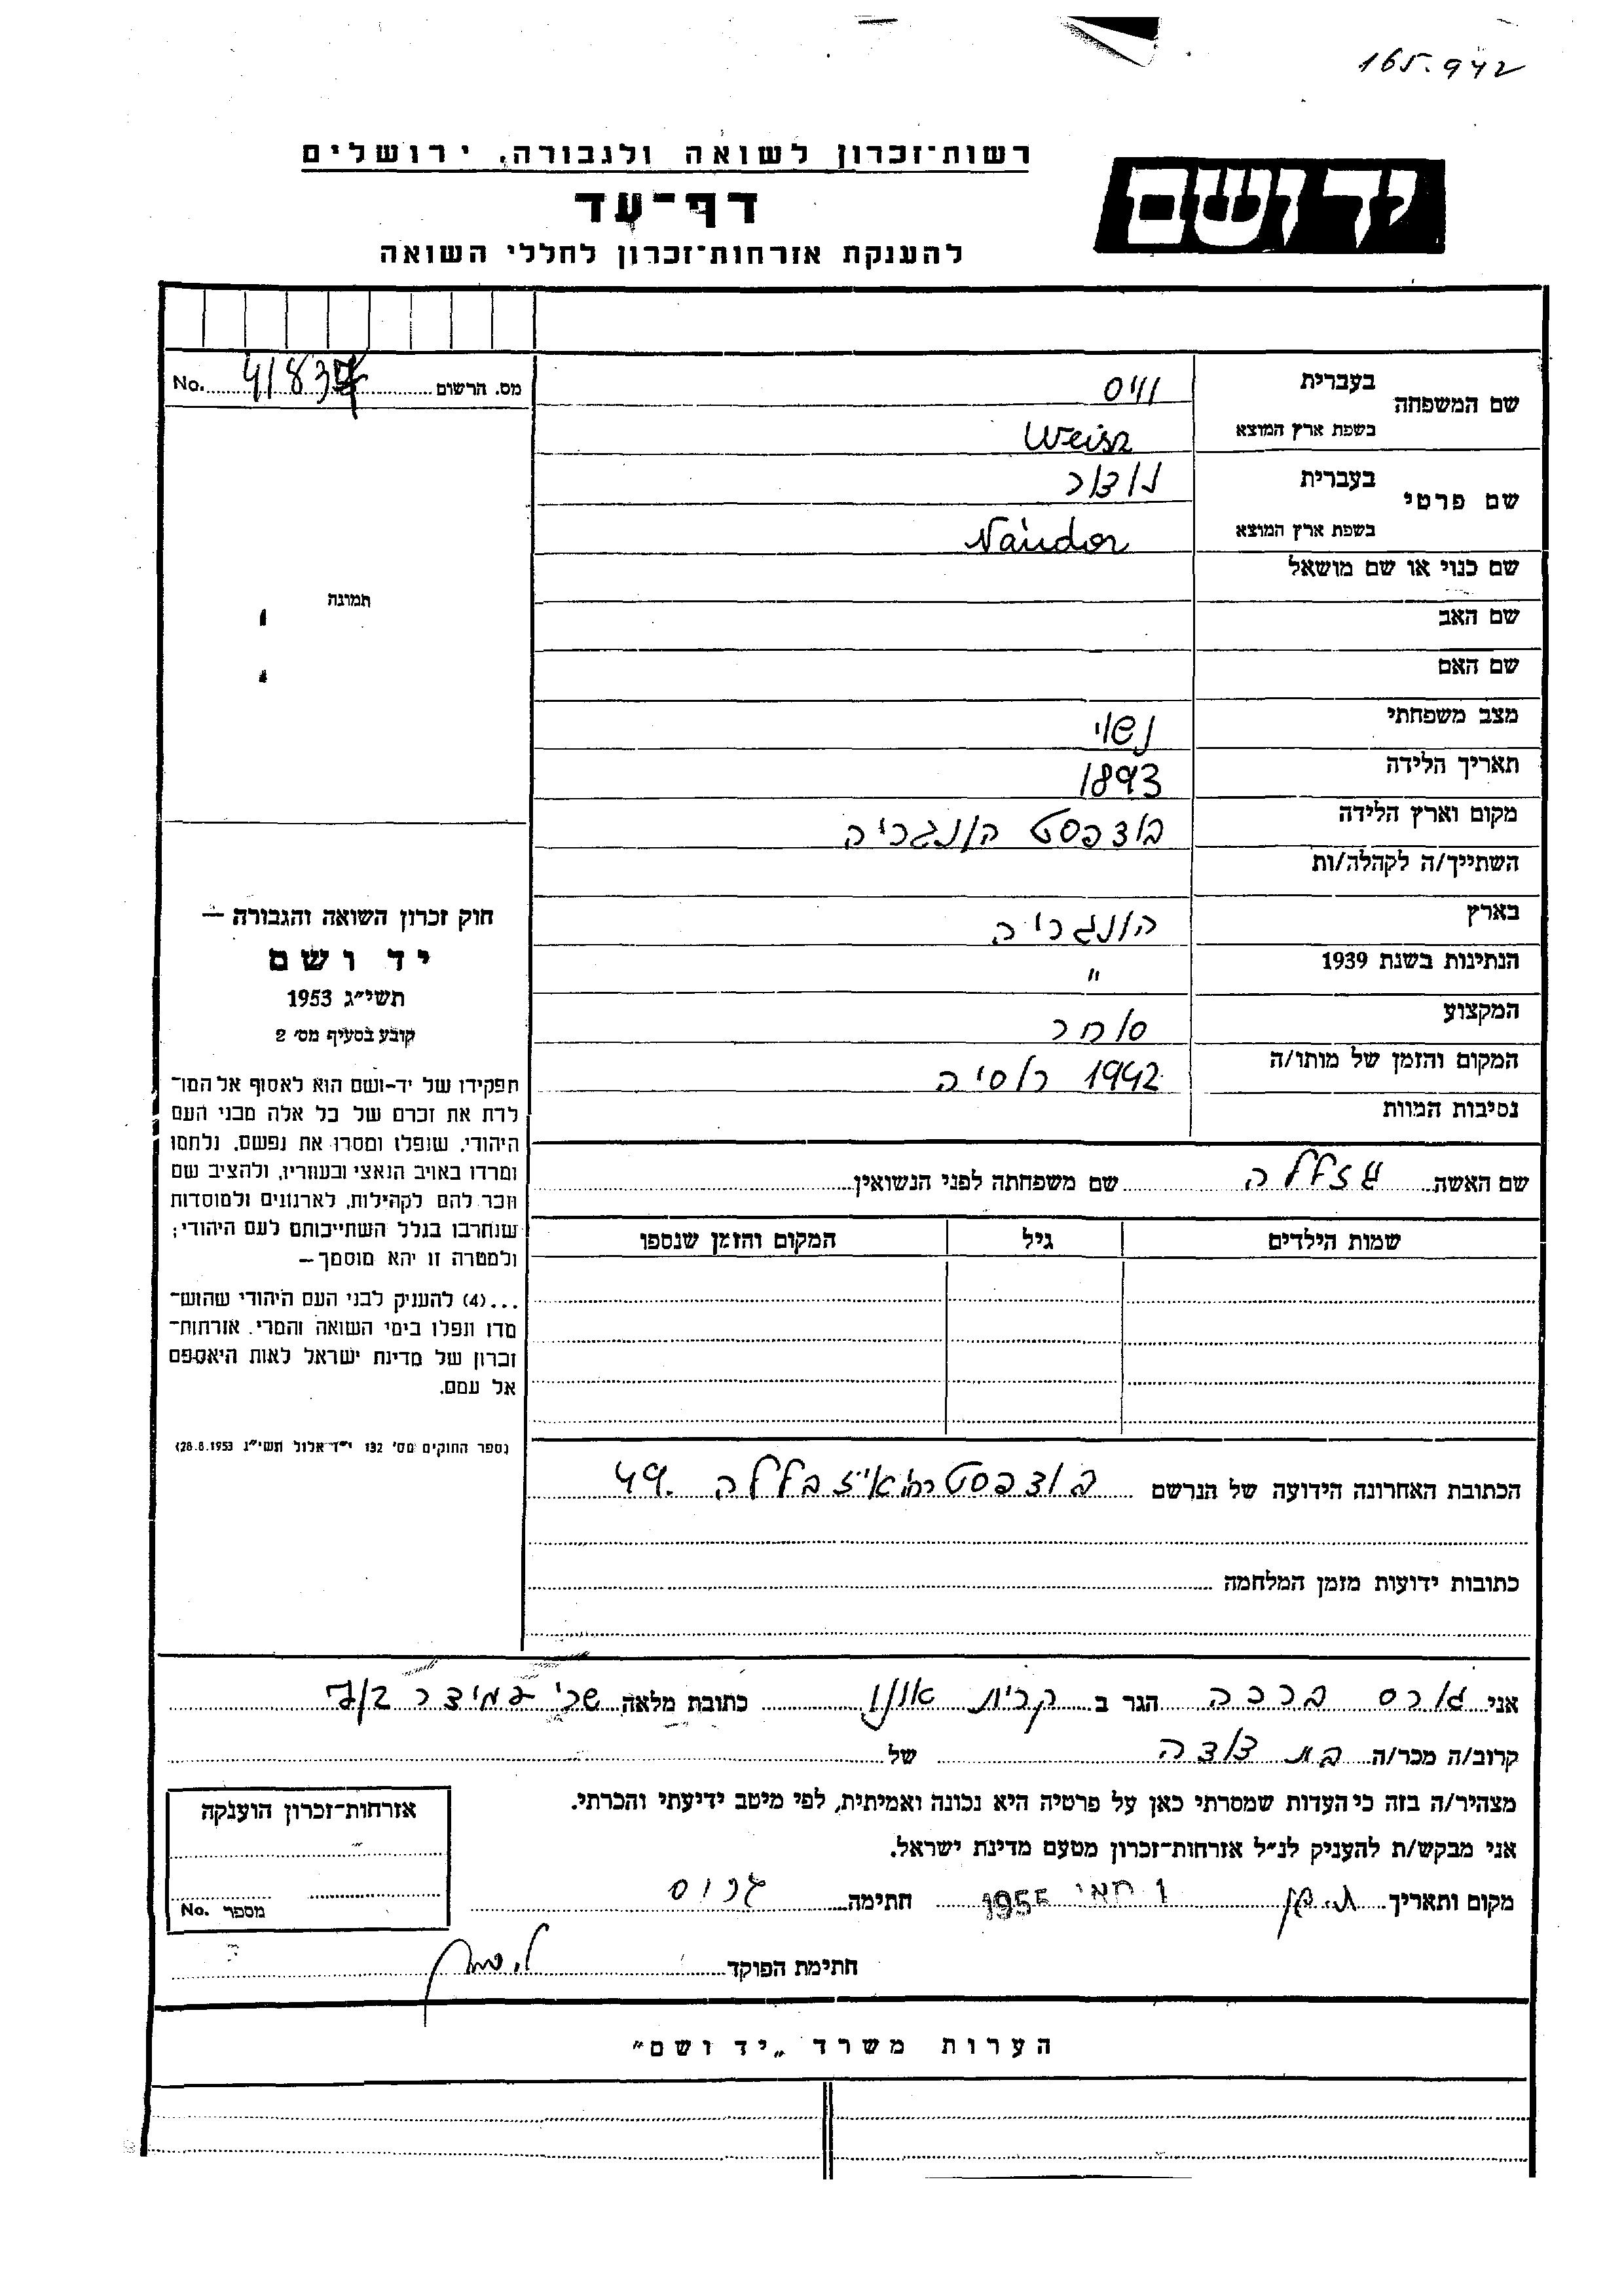 165.942
רשות־זכרון לשואה ולגבורה, ירושלים
יד ושם
דף־עד
להענקת אזרחות־זכרון לחללי השואה
מס. הרשום 4183 No.
שם המשפחה בעברית ווייס
בשפת ארץ המוצא Weisz
שם פרטי בעברית
בשפת ארץ המוצא Nándor
שם כנוי או שם מושאל
תמונה
שם האב
שם האם
מצב משפחתי נשוי
תאריך הלידה 1893
מקום וארץ הלידה בודפסט הונגריה
השתייך/ה לקהלה/ות
בארץ הונגריה
הנתינות בשנת 1939 "
המקצוע סוחר
המקום והזמן של מותו/ה 1942 רוסיה
נסיבות המוות
חוק זכרון השואה והגבורה —
יד ושם
תשי״ג 1953
קובע בסעיף מס׳ 2
תפקידו של יד-ושם הוא לאסוף אל המו־
לדת את זכרם של כל אלה מבני העם
היהודי, שנפלו ומסרו את נפשם, נלחמו
ומרדו באויב הנאצי ובעוזריו, ולהציב שם
וזכר להם לקהילות, לארגונים ולמוסדות
שנחרבו בגלל השתייכותם לעם היהודי;
ולמטרה זו יהא מוסמך—
...(4) להעניק לבני העם היהודי שהוש־
מדו ונפלו בימי השואה והמרי, אזרחות־
זכרון של מדינת ישראל לאות היאספם
אל עמם.
(ספר החוקים מס׳ 132 י״ד אלול תשי״ג 28.8.1953)
שם האשה גזללה שם משפחתה לפני הנשואין
שמות הילדים גיל המקום והזמן שנספו
הכתובת האחרונה הידועה של הנרשם בודפסט 49.
כתובות ידועות מזמן המלחמה
אני ברכה הגר ב קרית אונו כתובת מלאה
קרוב/ה מכר/ה בת דודה של
מצהיר/ה בזה כי העדות שמסרתי כאן על פרטיה היא נכונה ואמיתית, לפי מיטב ידיעתי והכרתי.
אני מבקש/ת להעניק לנ״ל אזרחות־זכרון מטעם מדינת ישראל.
מקום ותאריך 1 מאי 1955 חתימה
אזרחות־זכרון הוענקה
מספר No.
חתימת הפוקד
הערות משרד „יד ושם״